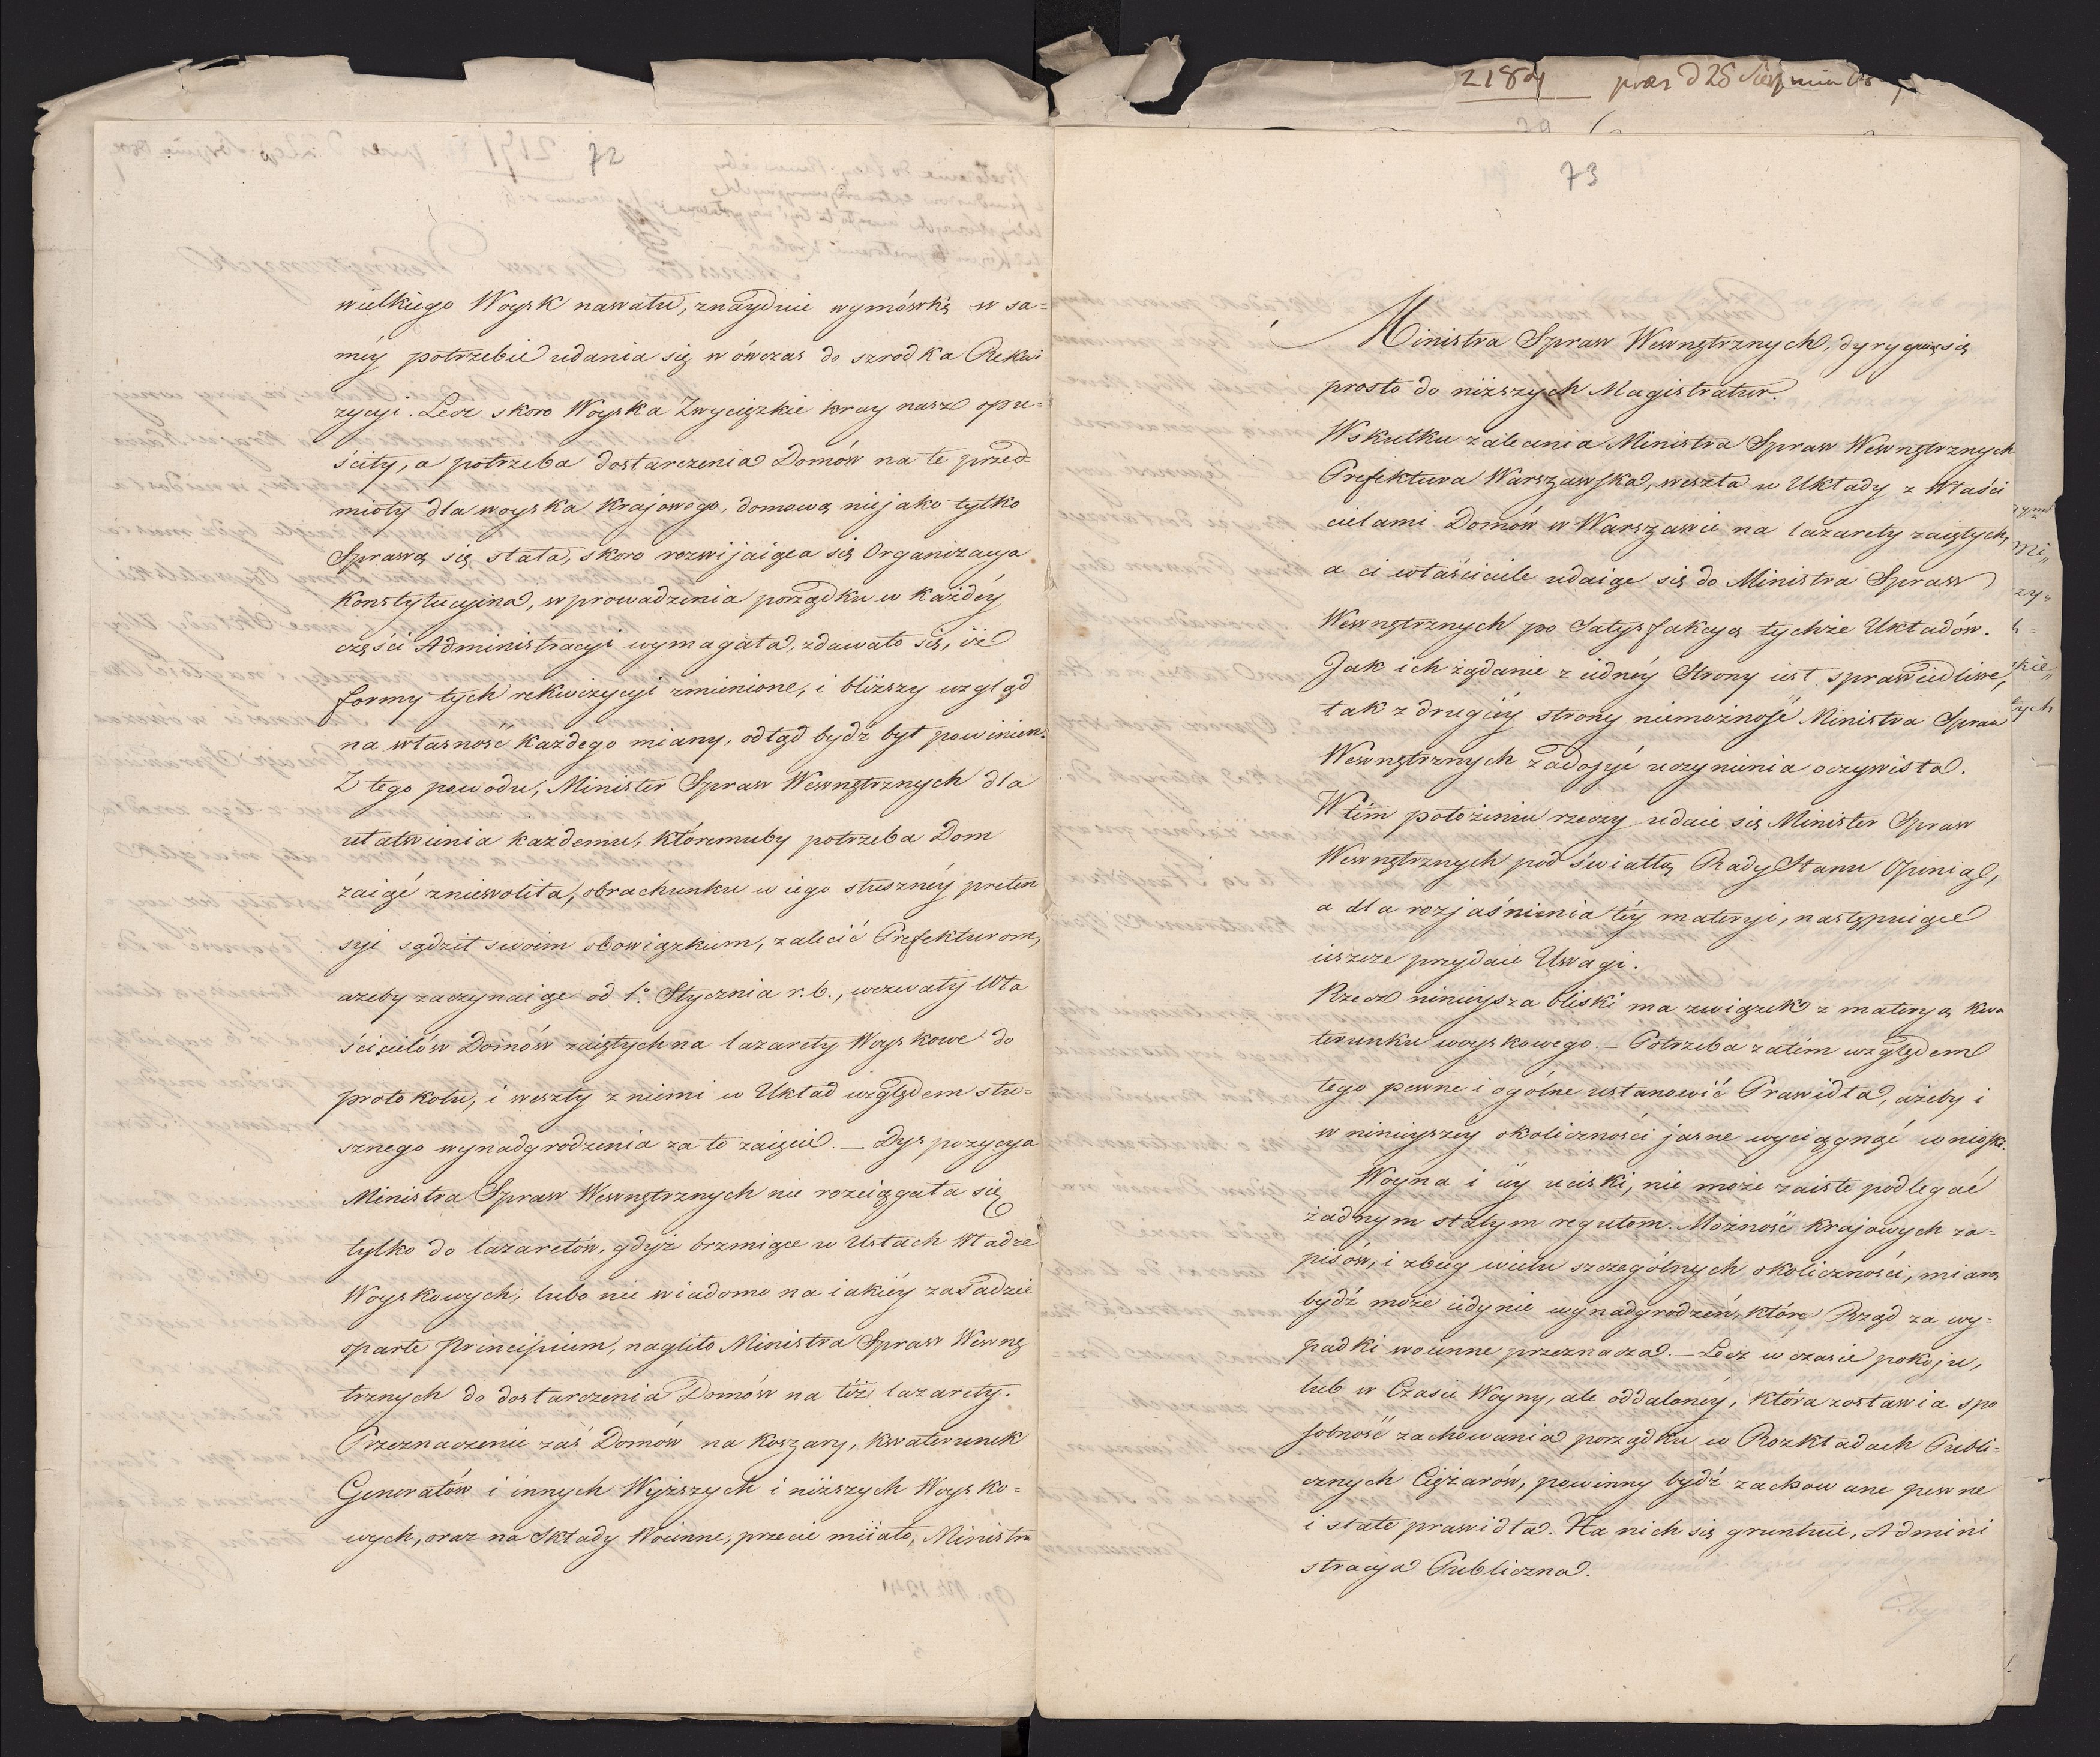 72
wielkiego Woysk nawału, znayduie wymówkę w sa=
méy potrzebie udania się w ówczas do szrodka Rekwi
zycyi. Lecz skoro Woyska Zwycięzkie kray nasz opu=
ściły, a potrzeba dostarczenia Domów na te przed=
mioty dla woyska krajowego, domową niejako tylko
Sprawą się stała, skoro rozwijaiąca się Organizacya
Konstytucyina, wprowadzenia porządku w każdéy
części Administracyi wymagała, zdawało się, iż
formy tych rekwizycyi zmienione, i bliższy wzgląd
na własność każdego miany, odtąd bydź był powinien.
Z tego powodu, Minister Spraw Wewnętrznych dla
ułatwienia każdemu, któremuby potrzeba Dom
zaiąć zniewoliła, obrachunku w iego słusznéy preten
syi sądził swoim obowiązkiem, zalecić Prefekturom,
ażeby zaczynaiąc od 1º Stycznia r. b., wezwały Wła
ścicielów Domów zaiętych na lazarety Woyskowe do
protokołu, i weszły z niemi w Układ względem słu=
sznego wynadgrodzenia za to zaięcie. — Dyspozycya
Ministra Spraw Wewnętrznych nie rozciągała się
tylko do lazaretów, gdyż brzmiące w Ustach Władz
Woyskowych, lubo nie wiadomo na iakiéy zasadzie
oparte Principium, nagliło Ministra Spraw Wewnę
trznych do dostarczenia Domów na też lazarety.
Przeznaczenie zaś Domów na Koszary, kwaterunek
Generałów i innych Wyższych i niższych Woysko=
wych, oraz na Składy Woienne, przecie miiało, Ministra
2184 praes d 28 Sierpnia
73
Ministra Spraw Wewnętrznych, dyryguiąc się
prosto do niższych Magistratur.
Wskutku zalecenia Ministra Spraw Wewnętrznych
Prefektura Warszawska, weszła w Układy z Właści
cielami Domów w Warszawie na lazarety zaiętych,
a ci właściciele udaią się do Ministra Spraw
Wewnętrznych po Satysfakcyą tychże Układów.
Jak ich żądanie z iednéy Strony iest sprawiedliwe,
tak z drugiéy strony niemożność Ministra Spraw
Wewnętrznych zadosyć uczynienia oczywista.
W tém położeniu rzeczy udaie się Minister Spraw
Wewnętrznych pod światłą Rady Stanu Opinią,
a dla rozjaśnienia téy materyi, następuiące
ieszcze przydaie Uwagi.
Rzecz ninieysza bliski ma związek z materyą kwa
terunku woyskowego. — Potrzeba zatém względem
tego pewne i ogólne ustanowić Prawidła, ażeby i
w ninieyszéy okoliczności jasne wyciągnąć wnioski.
Woyna i iéy uciski, nie może zaiste podlegać
żadnym stałym regułom. Możność krajowych za=
pisów, i zbieg wielu szczególnych okoliczności, miarą
bydź może iedynie wynadgrodzeń, które Rząd za wy=
padki woienne przeznacza. — Lecz w czasie pokoju,
lub w Czasie Woyny, ale oddalonéy, która zostawia spo
sobność zachowania porządku w Rozkładach Publi=
cznych Ciężarów, powinny bydź zachowane pewne
i stałe prawidła. Na nich się gruntuie, Admini
stracya Publiczna.